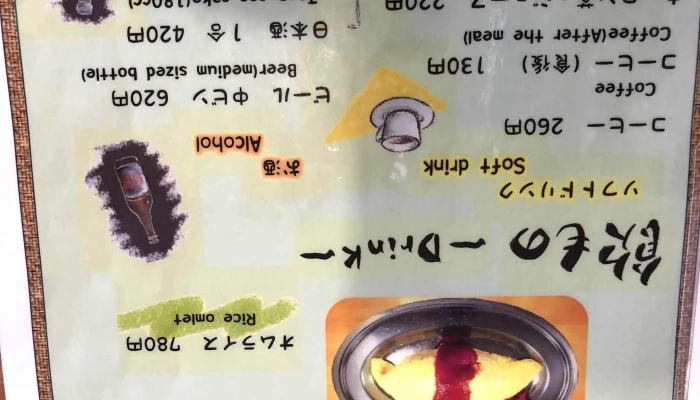 オムライス 780円
Rice omlet
飲もの ーDrinkー
ソフトドリンク
Soft drink
コーヒー 260円
Coffee
コーヒー (食後) 130円
Coffee(After the meal)
220円
お酒
Alcohol
ビール 中ビン 620円
Beer(medium sized bottle)
日本酒 1合 420円